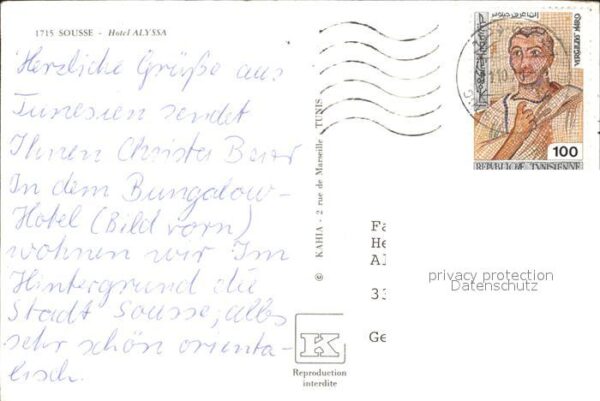 1715 SOUSSE - Hotel ALYSSA
Herzliche Grüße aus
Tunesien sendet
Ihnen Christa
In dem Bungalow-
Hotel (Bild vorn)
wohnen wir Im
Hintergrund die
Stadt Sousse, alles
sehr schön orienta-
lisch.
© KAHIA - 2 rue de Marseille - TUNIS
K
Reproduction
interdite
100
REPUBLIQUE TUNISIENNE
Fa
He
Al
33
Ge
privacy protection
Datenschutz